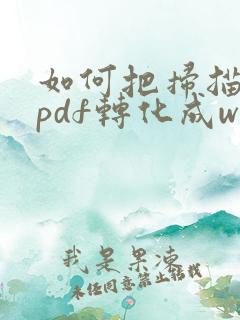 如何把掃描
pdf轉化成w
我是果凍
未经同意禁止搬我